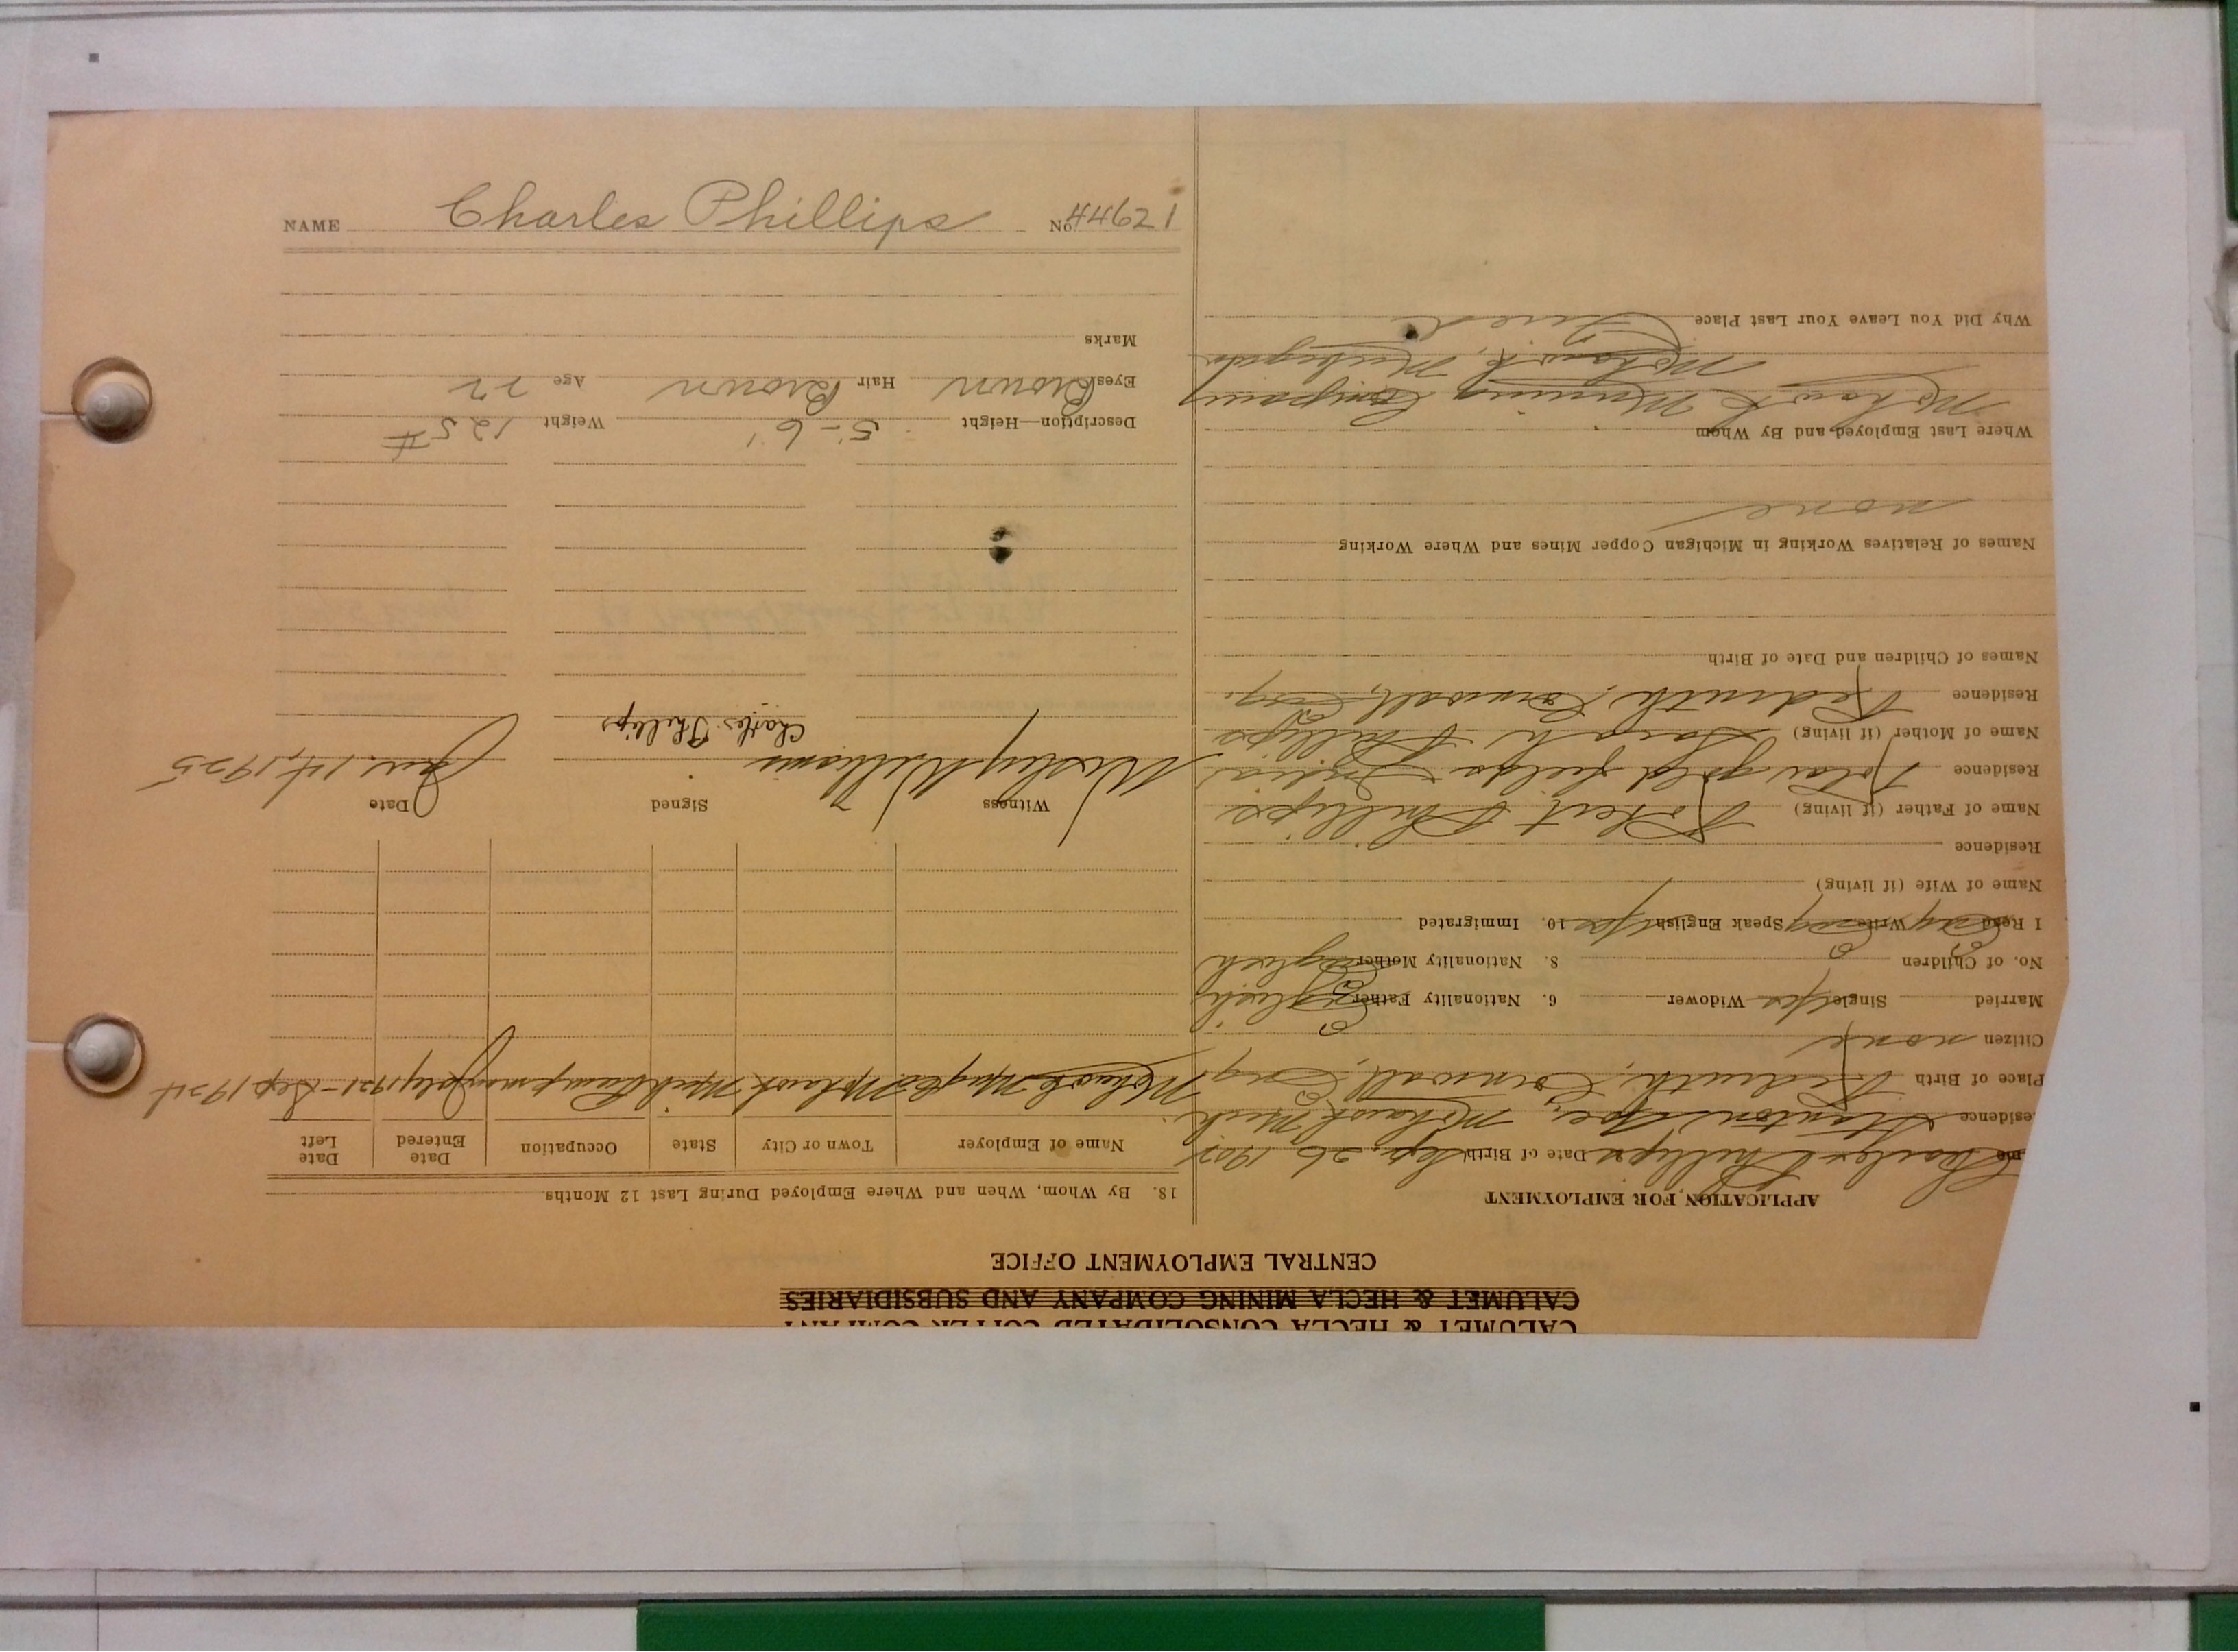 CALUMET & HECLA CONSOLIDATED COPPER COMPANY
CALUMET & HECLA MINING COMPANY AND SUBSIDIARIES
CENTRAL EMPLOYMENT OFFICE
APPLICATION FOR EMPLOYMENT
me Charles Phillips 2. Date of Birth Sep. 26 1902
esidence Stanton Ave, Mohawk Mich.
Place of Birth Redruth, Cornwall, Eng
Citizen none
Married Single Yes Widower 6. Nationality Father English
No. of Children 8. Nationality Mother English
I Read Eng Write Eng Speak English Yes 10. Immigrated
Name of Wife (if living)
Residence
Name of Father (if living) Robert Phillips
Residence Kolar gold fields India
Name of Mother (if living) Sarah Phillips
Residence Redruth, Cornwall, Eng.
Names of Children and Date of Birth
Names of Relatives Working in Michigan Copper Mines and Where Working
none
Where Last Employed and By Whom
Mohawk Mining Company
Mohawk, Michigan
Why Did You Leave Your Last Place Fired
18. By Whom, When and Where Employed During Last 12 Months
Name of Employer Town or City State Occupation Date Entered Date Left
Mohawk Mng Co Mohawk Mich July 1921 - Sep 1924
Witness Signed Date
Wesley Williams Charles Phillips Jan. 14, 1925
Description—Height 5'-6" Weight 125#
Eyes Brown Hair Brown Age 22
Marks
NAME Charles Phillips No. 44621